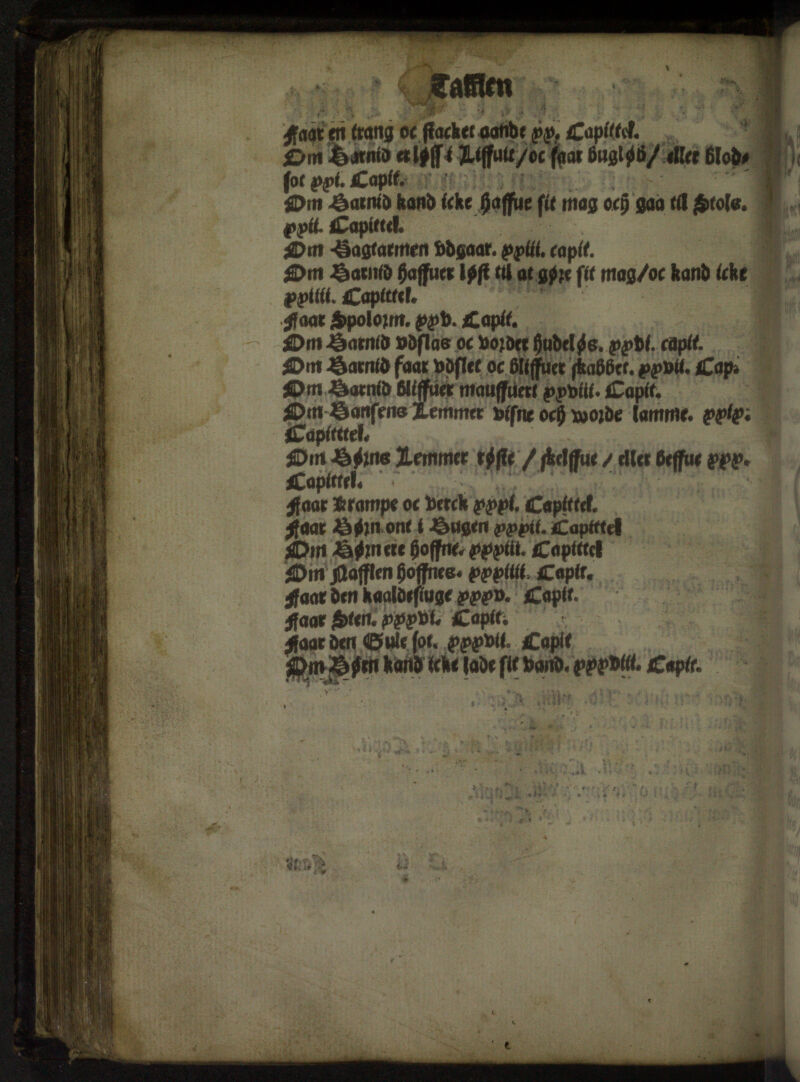 Tafflen
Faar en trang oc stacket aande xx. Capittel.
Om Barnid er løss i Liffuit/oc faar bugløb/ eller Blod-
sot xxi. Capit.
Om Barnid kand icke haffue sit mag och gaa til Stols.
xxii. Capittel.
Om Bagtarmen vdgaar. xxiii. capit.
Om Barnid haffuer løst til at gøre sit mag/oc kand icke
xxiiii. Capittel.
Faar Spolorm. xxv. Capit.
Om Barnid vdslas oc vorder hudeløs. xxvi. capit.
Om Barnid faar vdslet oc bliffuer skabbet. xxvii. Cap.
Om Barnid bliffuer mauffuert xxviii. Capit.
Om Barnsens Lemmer visne och worde lamme. xxix.
Capitttel.
Om Børns Lemmer røste / skelffue / eller beffue xxx.
Capittel.
Faar Krampe oc verck xxxi. Capittel.
Faar Børn ont i Bugen xxxii. Capittel
Om Børn ere hoffne. xxxiii. Capittel
Om Nafflen hoffnes. xxxiiii. Capit.
Faar den kaaldesiuge xxxv. Capit.
Faar Sten. xxxvi. Capit.
Faar den Gule sot. xxxvii. Capit
Om Børn kand icke lade sit vand. xxxviii. Capit.